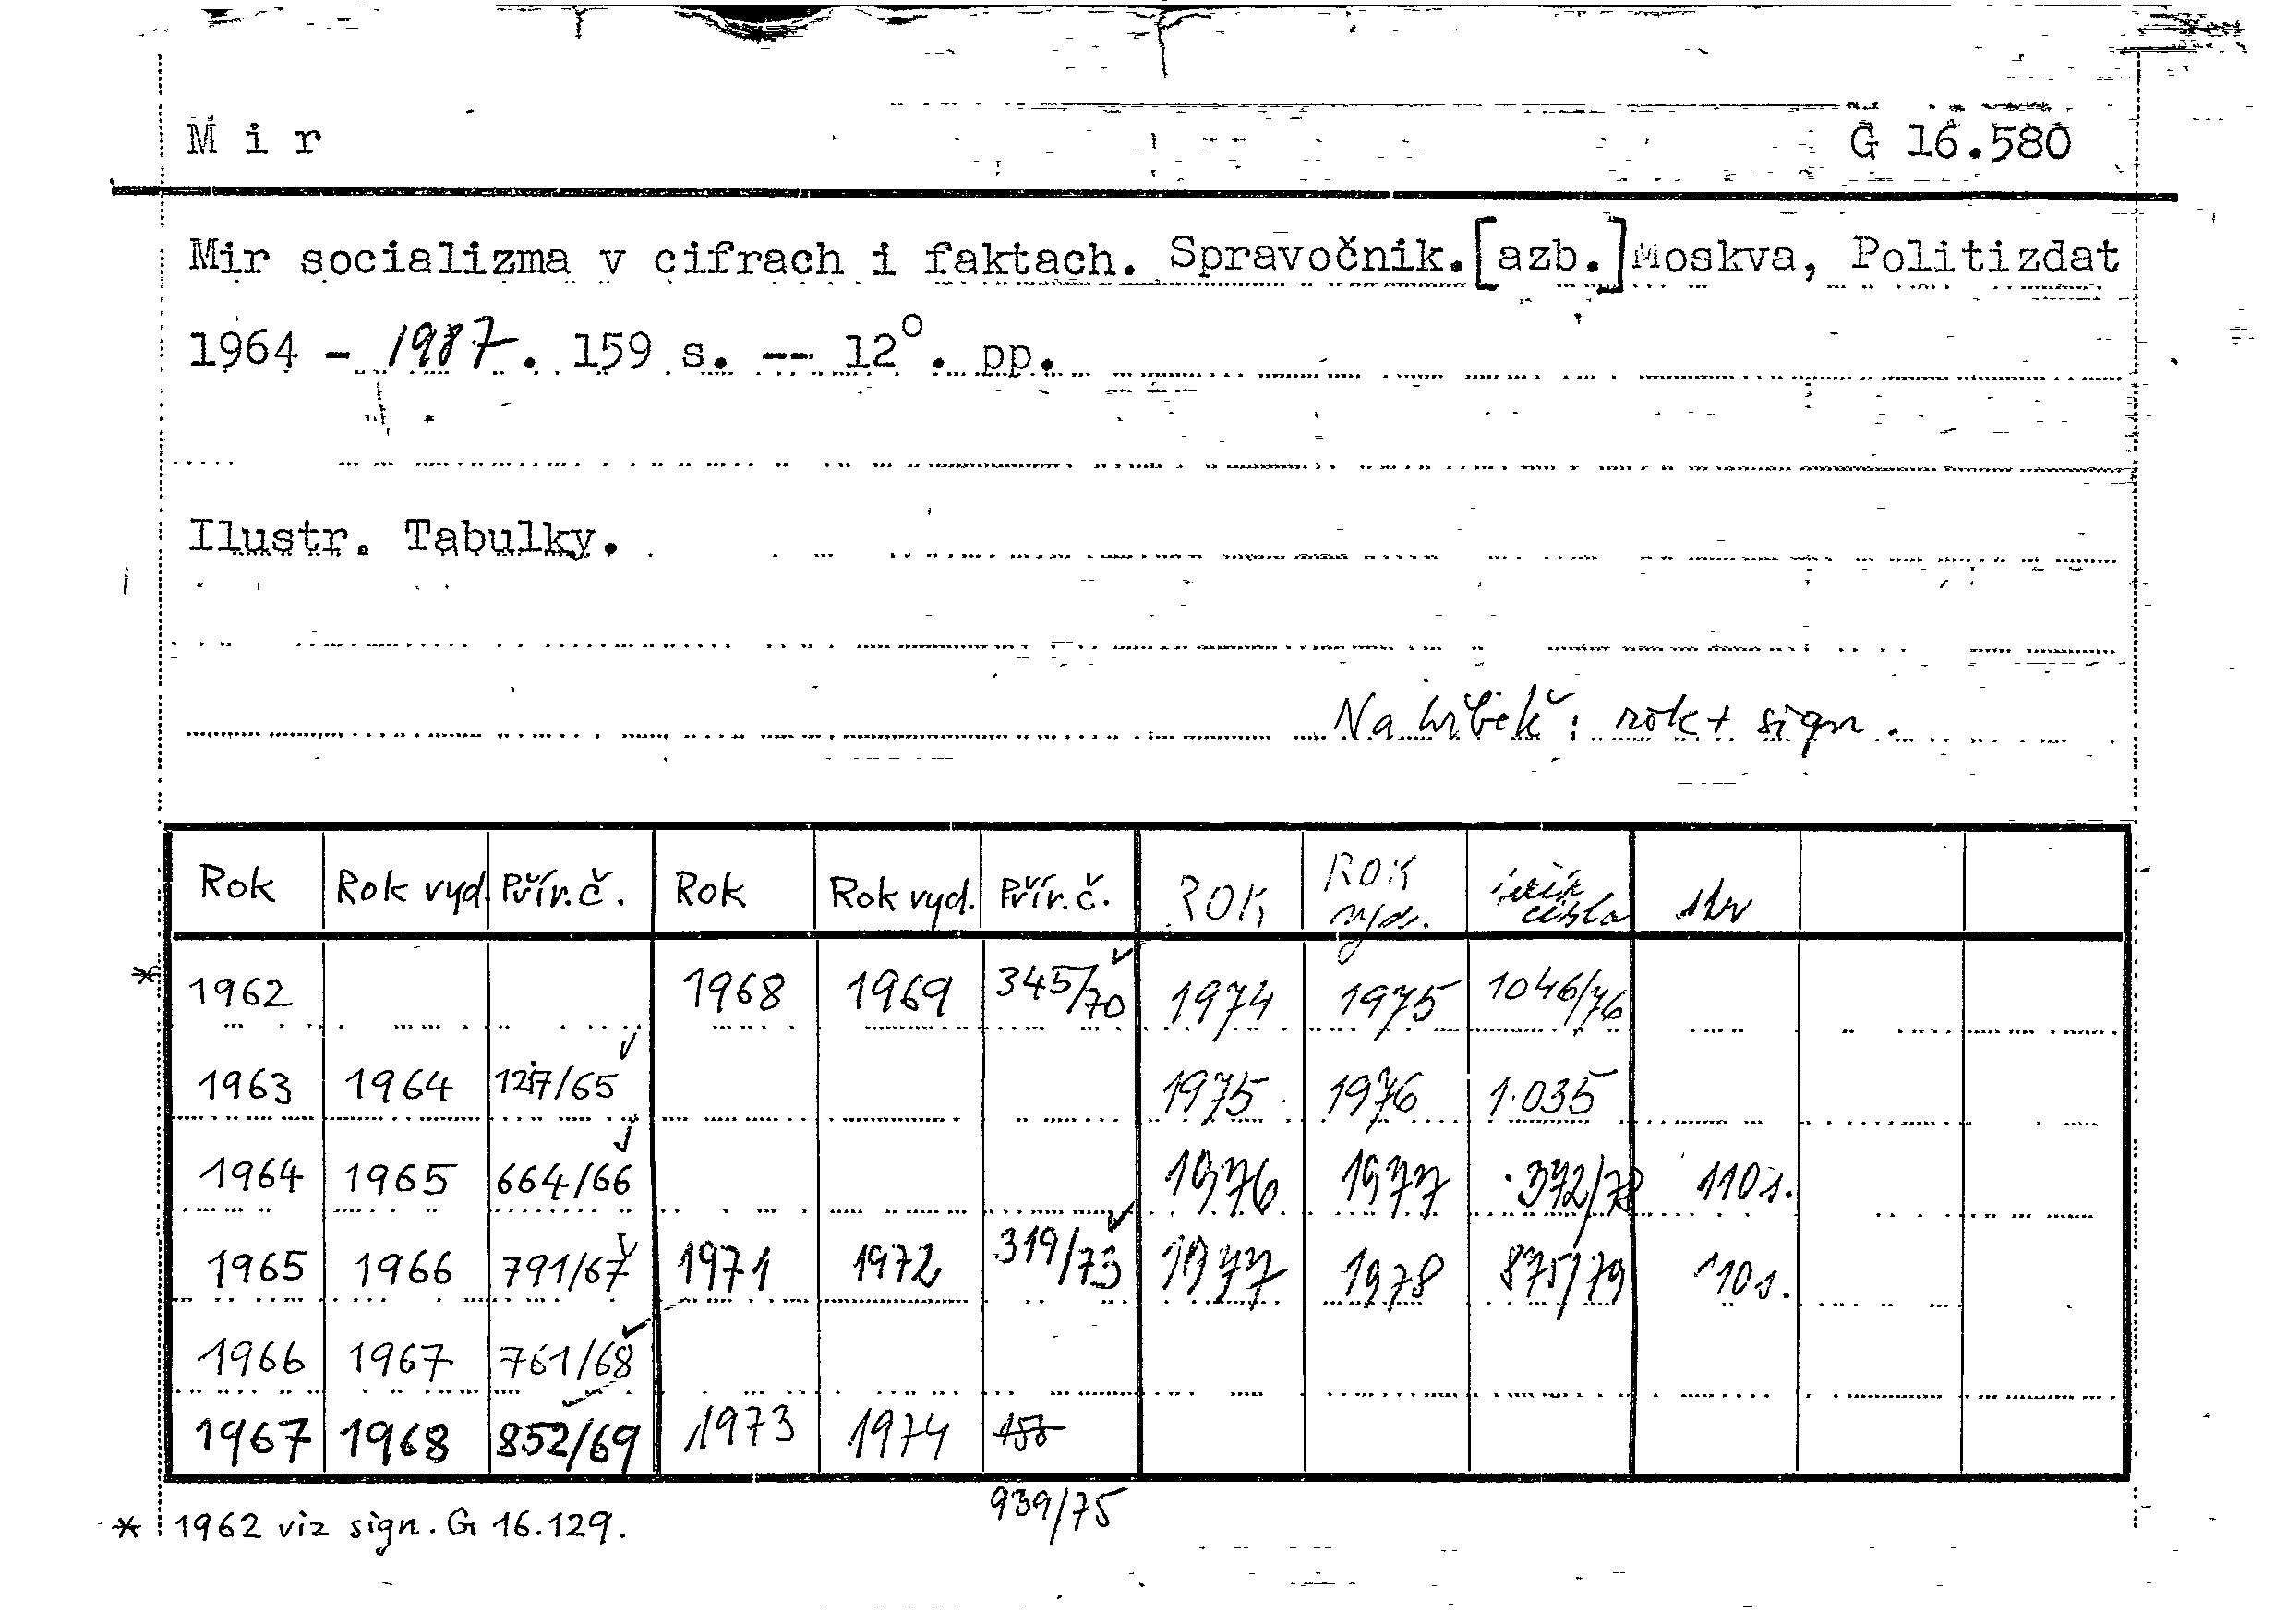 M i r G 16.580
Mir socializma v cifrach i faktach. Spravočnik. [azb.] Moskva, Politizdat
1964 - 1987. 159 s. -- 12°. pp.
Ilustr. Tabulky.
Na hřbetě: rok + sign.
Rok Rok vyd. Přír.č. Rok Rok vyd. Přír.č. ROK ROK vyd. čísla str
* 1962 1968 1969 345/70 1974 1975 1046/76
1963 1964 127/65 1975 1976 1.035
1964 1965 664/66 1976 1977 372/78 110 s.
1965 1966 791/67 1971 1972 319/73 1977 1978 875/79 110 s.
1966 1967 761/68
1967 1968 852/69 1973 1974
939/75
* 1962 viz sign. G 16.129.